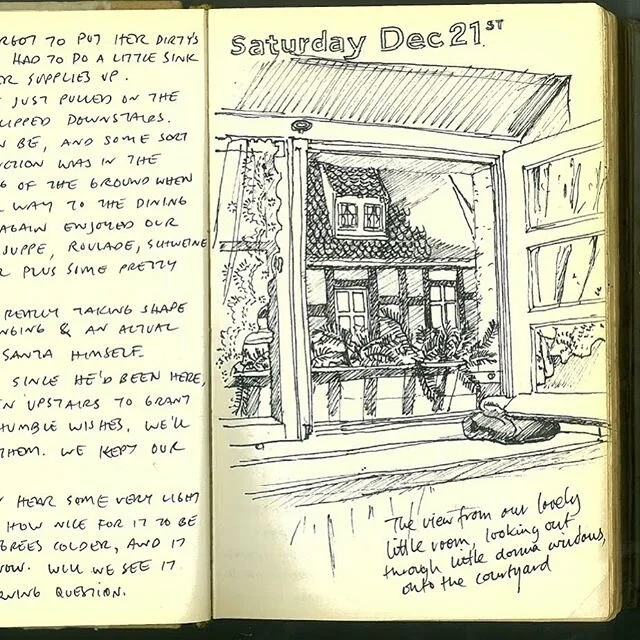 RGOT TO PUT HER DIRTYS
HAD TO DO A LITTLE SINK
ER SUPPLIES UP.
JUST PULLED ON THE
LIPPED DOWNSTAIRS.
N BE, AND SOME SORT
UCTION WAS IN THE
G OF THE GROUND WHEN
WAY TO THE DINING
AGAIN ENJOYED OUR
SUPPE, ROULADE, SCHWEINE
R PLUS SOME PRETTY
REALLY TAKING SHAPE
NGING & AN ACTUAL
SANTA HIMSELF.
SINCE HE'D BEEN HERE,
EN UPSTAIRS TO GRANT
HUMBLE WISHES. WE'LL
THEM. WE KEPT OUR
Y HEAR SOME VERY LIGHT
HOW NICE FOR IT TO BE
GREES COLDER, AND IT
NOW. WILL WE SEE IT
RNING QUESTION.
Saturday Dec 21ST
The view from our lovely
little room, looking out
through little windows,
onto the courtyard